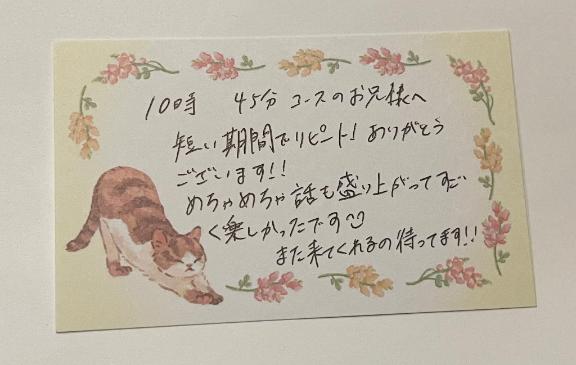 10時 45分 コースのお兄様へ
短い期間でリピート! ありがとう
ございます!!
めちゃめちゃ話も盛り上がってすご
く楽しかったです
また来てくれるの待ってます!!